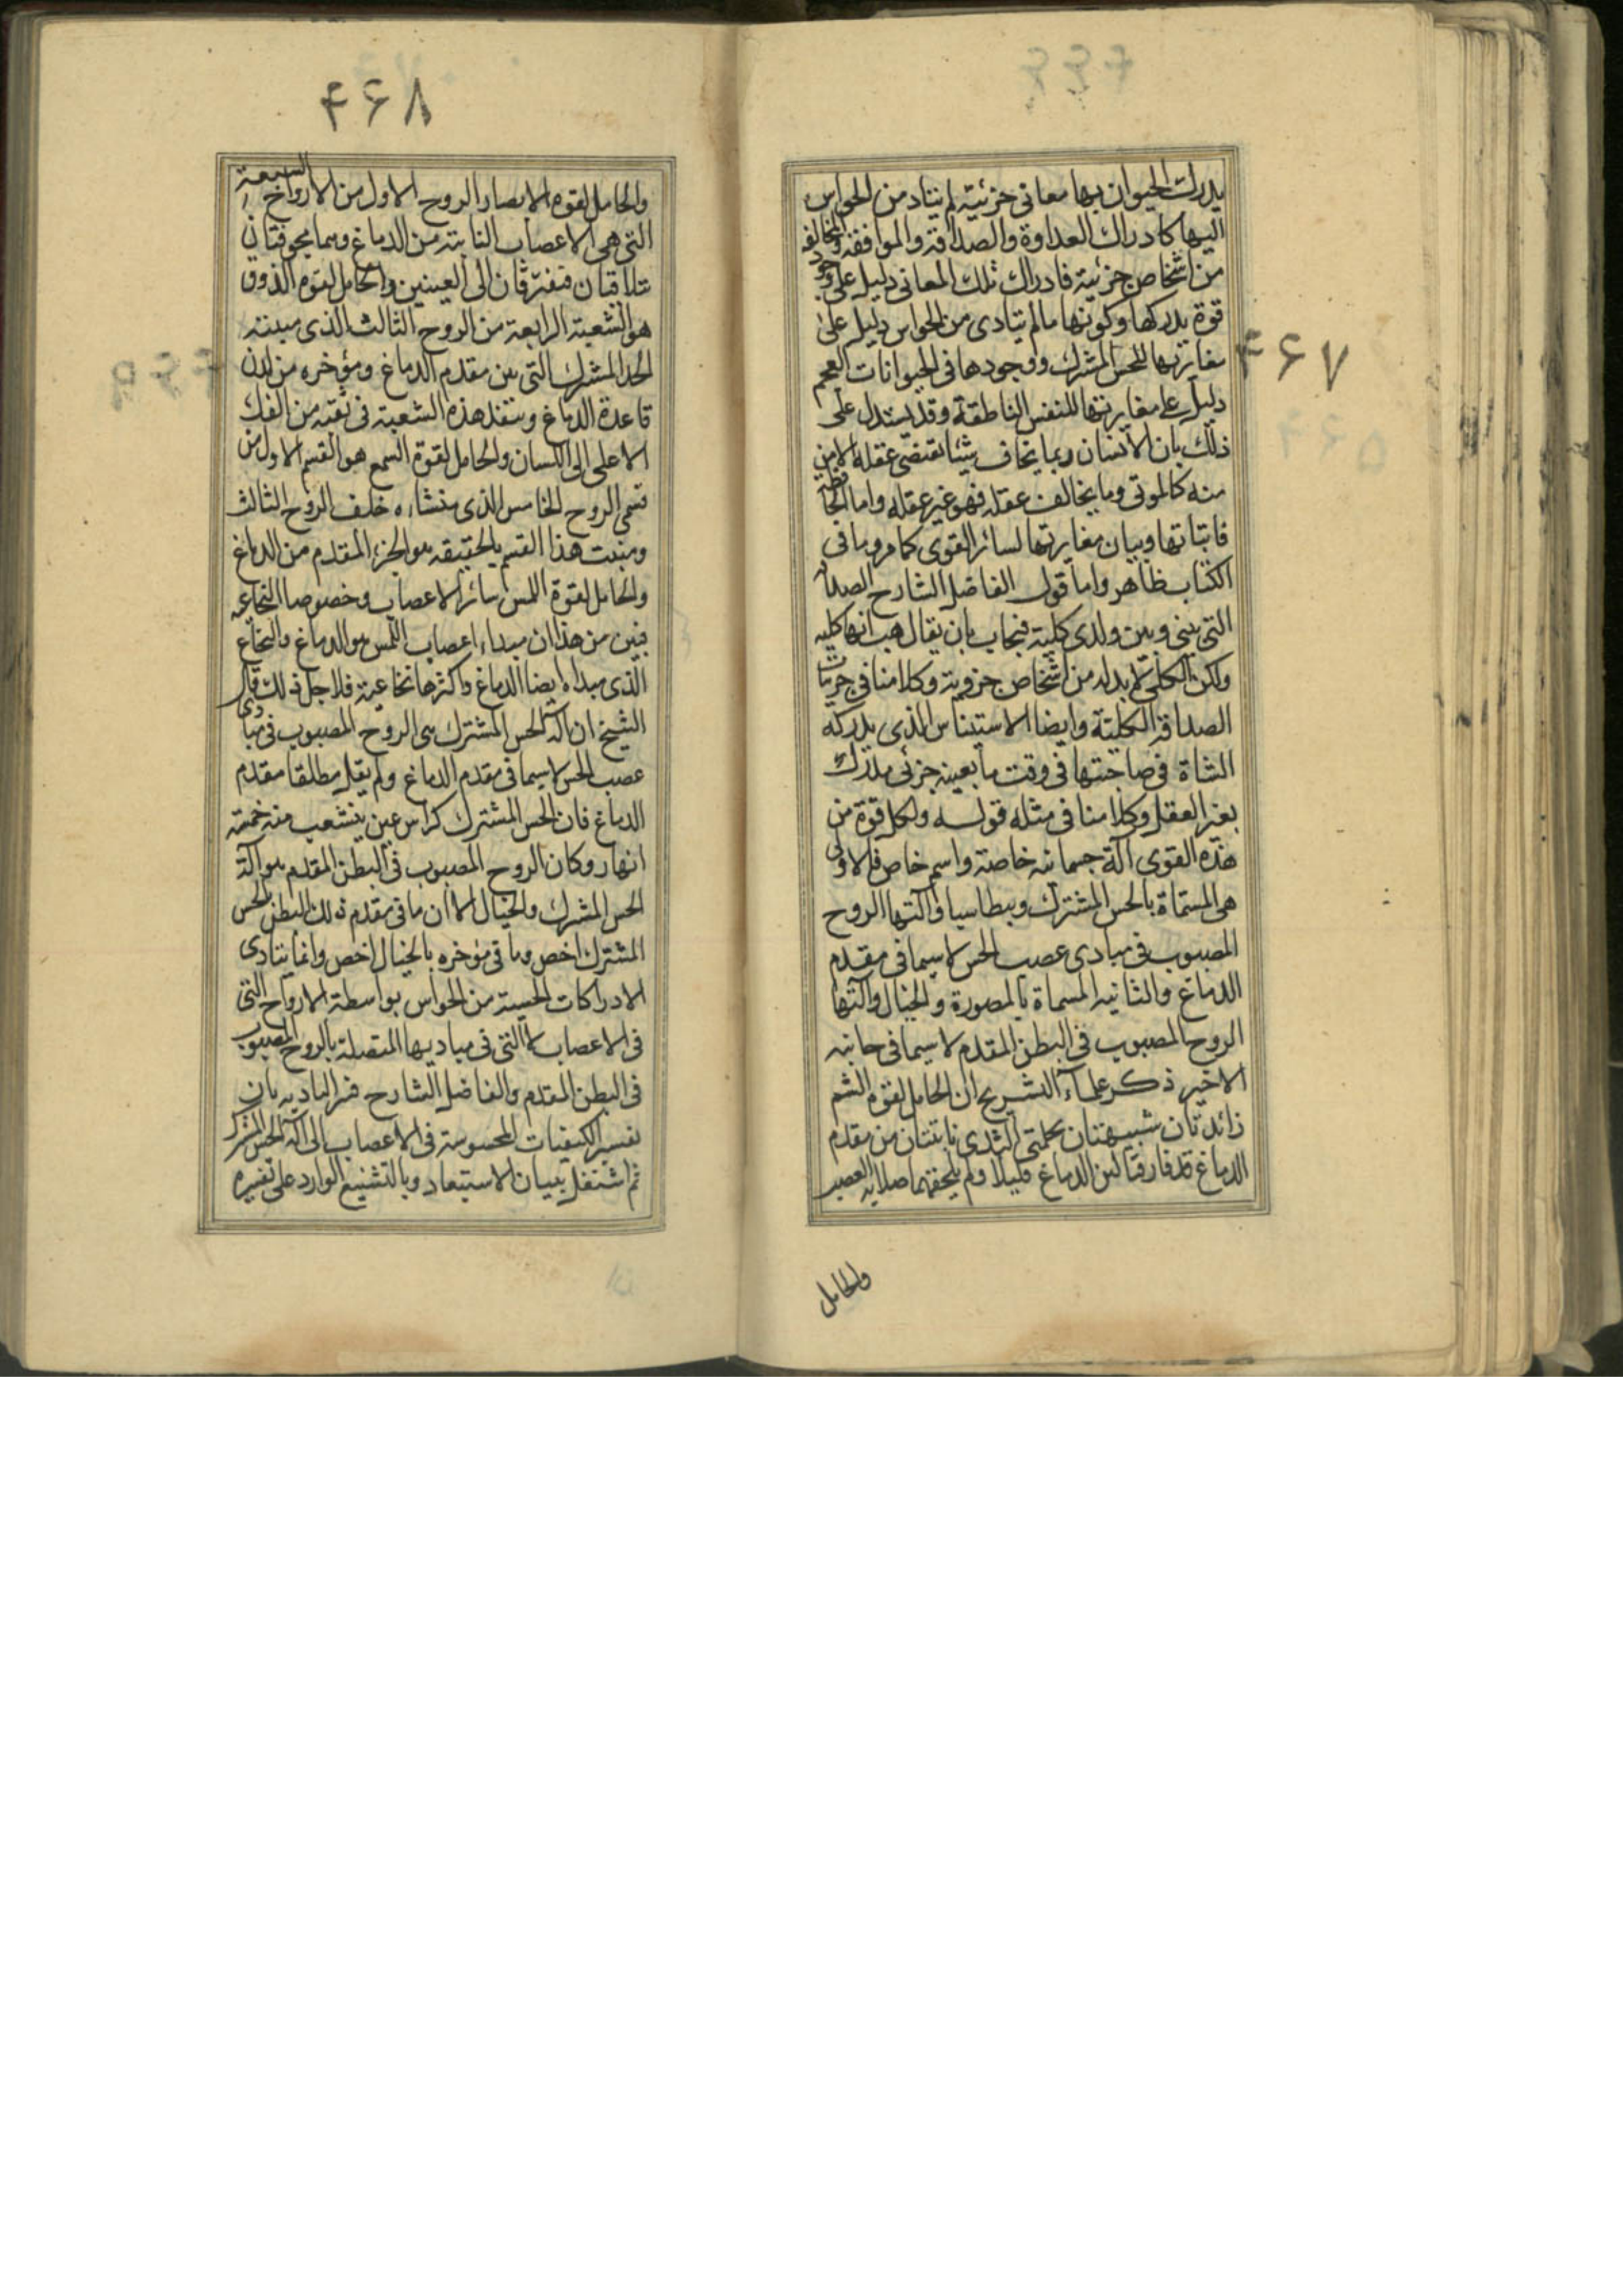 ۴۶۷
يدرك الحيوان بها معانى جزئية لم يتاد من الحواس
اليها كادراك العداوة والصداقة والموافقة والمخالفة
من اشخاص جزئية فادراك تلك المعانى دليل على وجود
قوة يدركها وكونها مما لم يتادى من الحواس دليل على
مغايرتها للحس المشترك ووجودها فى الحيوانات العجم
دليل على مغايرتها للنفس الناطقة وقد يستدل على
ذلك بان الانسان ربما يخاف شيئا يقتضى عقله الامن
منه كالموتى وما يخالف عقله فهو غير عقله واما الحافظة
فاثباتها وبيان مغايرتها لسائر القوى كما مر وما فى
الكتاب ظاهر واما قول الفاضل الشارح الصداقة
التى بينى وبين ولدى كلية فيجاب بان يقال هب انها كلية
ولكن الكلى لا بد له من اشخاص جزوية وكلامنا فى جزيات
الصداقة الكلية وايضا الاستيناس الذى يدركه
الشاة فى صاحبتها فى وقت ما بعينه جزئى مدرك
بغير العقل وكلامنا فى مثله قوله ولكل قوة من
هذه القوى الة جسمانية خاصة واسم خاص فالاولى
هى المسماة بالحس المشترك وبنطاسيا وآلتها الروح
المصبوب فى مبادى عصب الحس لاسيما فى مقدم
الدماغ والثانية المسماة بالمصورة والخيال وآلتها
الروح المصبوب فى البطن المقدم لاسيما فى جانبه
الاخير ذكر علماء التشريح ان الحامل لقوة الشم
زائدتان شبيهتان بحلمتى الثدى نابتتان من مقدم
الدماغ قد فارقتا لين الدماغ قليلا ولم يلحقهما صلابة العصب
والحامل
۴۶۸
والحامل لقوة الابصار الروح الاول من الارواح السبعة
التى هى الاعصاب النابتة من الدماغ وهما مجوفتان
يتلاقيان فيفترقان الى العينين والحامل لقوة الذوق
هو الشعبة الرابعة من الروح الثالث الذى مبينه
الحد المشترك التى بين مقدم الدماغ ومؤخره من لدن
قاعدة الدماغ وينفذ هذه الشعبة فى ثقبة من الفك
الاعلى الى اللسان والحامل لقوة السمع هو القسم الاول من
قسمى الروح الخامس الذى منشاءه خلف الروح الثالث
ومنبت هذا القسم بالحقيقة هو الجزء المقدم من الدماغ
والحامل لقوة اللمس سائر الاعصاب وخصوصا النخاعية
فبين من هذا ان مبداء اعصاب اللمس هو الدماغ والنخاع
الذى مبداه ايضا الدماغ واكثرها نخاعية فلاجل ذلك قال
الشيخ ان آلة الحس المشترك هى الروح المصبوب فى مبادى
عصب الحس لاسيما فى مقدم الدماغ ولم يقل مطلقا مقدم
الدماغ فان الحس المشترك كراس عين ينشعب منه خمسة
انهار وكان الروح المصبوب فى البطن المقدم هو آلة
الحس المشترك والخيال الا ان ما فى مقدم ذلك البطن بالحس
المشترك اخص وما فى مؤخره بالخيال اخص وانما يتادى
الادراكات الحسية من الحواس بواسطة الارواح التى
فى الاعصاب الى التى فى مباديها المتصلة بالروح المصبوب
فى البطن المقدم والفاضل الشارح فسر التادية بان
تفسير الكيفيات المحسوسة فى الاعصاب الى آلة الحس المشترك
ثم اشتغل ببيان الاستبعاد وبالتشنيع الوارد على تفسيره